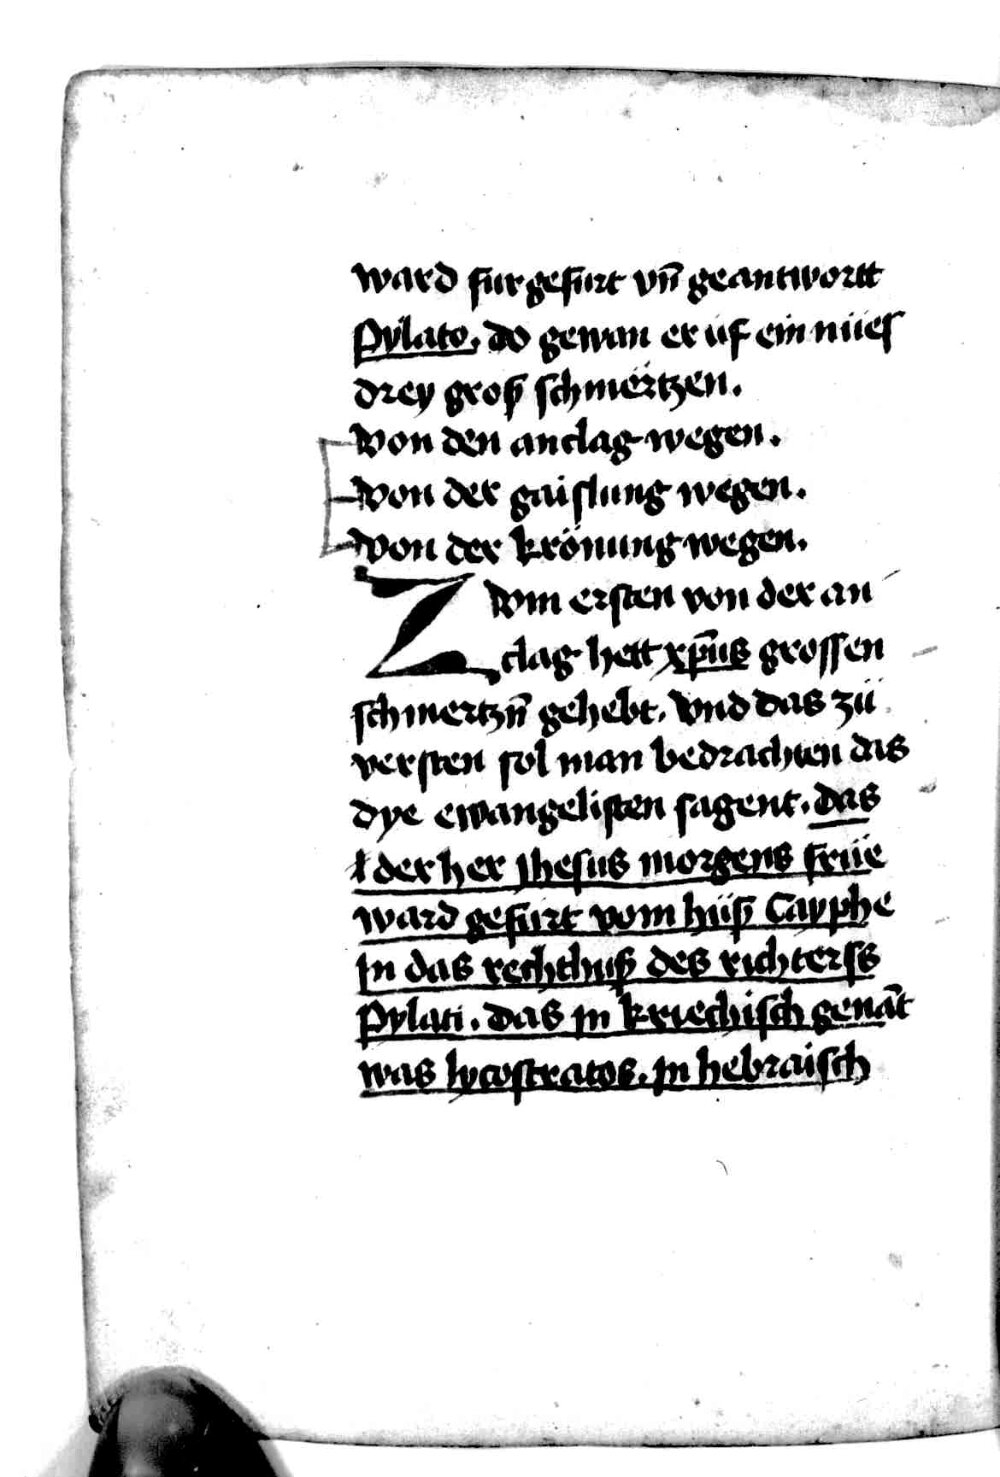 ward fúrgefúrt vn̄ geantwortt
Pylato. do gewan er uf ein nües
drey groß schmërtzen.
Von den anclag wegen.
Von der gaislung wegen.
Von der krönung wegen.
Zum ersten von der an
clag hett xp̄us grossen
schmertzn̄ gehebt. Vnd das zü
versten sol man bedrachten das
dye ewangelisten sagent. das
der her Jhesus morgens früe
ward gefúrt vom hüß Cayphe
jn das rechthuß des richterss
Pylati. das jn kriechisch genāt
was lycostratos. jn hebraisch